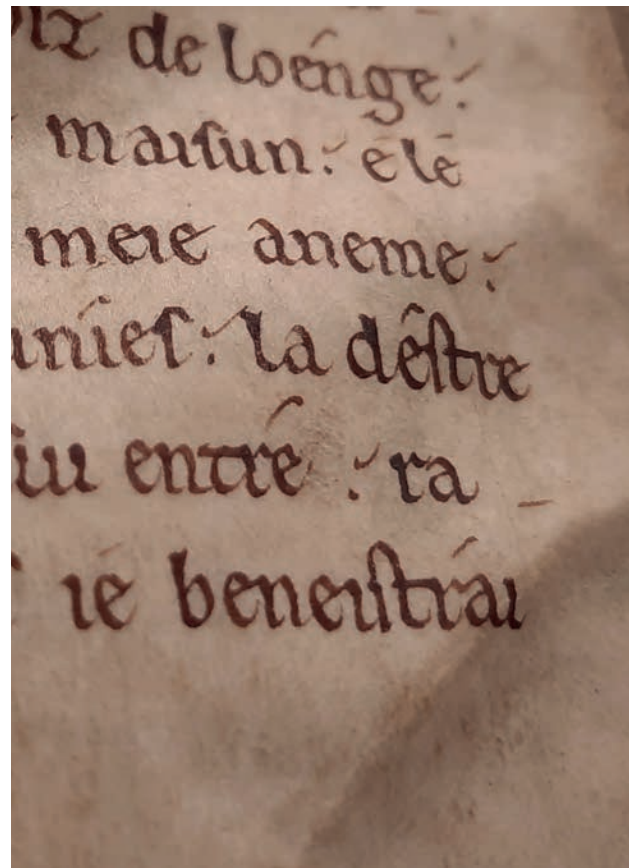 de loénge:
maisun: e le
meie aneme:
la destre
entré : ra
ie beneistrai